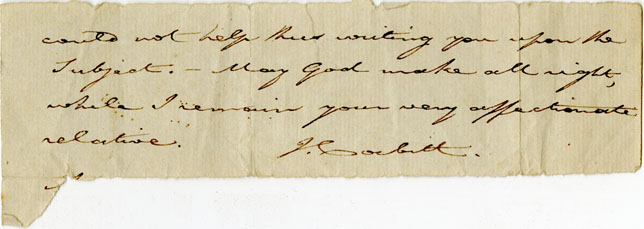 could not help thus writing you upon the
Subject. – May God make all right,
while I remain your very affectionate
relative. J.